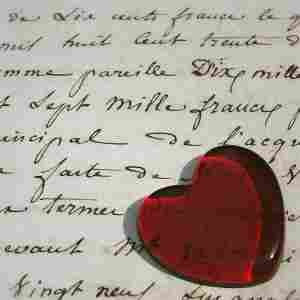 de Six cents francs le
mil huit cent trente
somme pareille Dix mille
et Sept mille francs
principal de l'acqu
a faite de
termer
devant Me
Vingt neuf